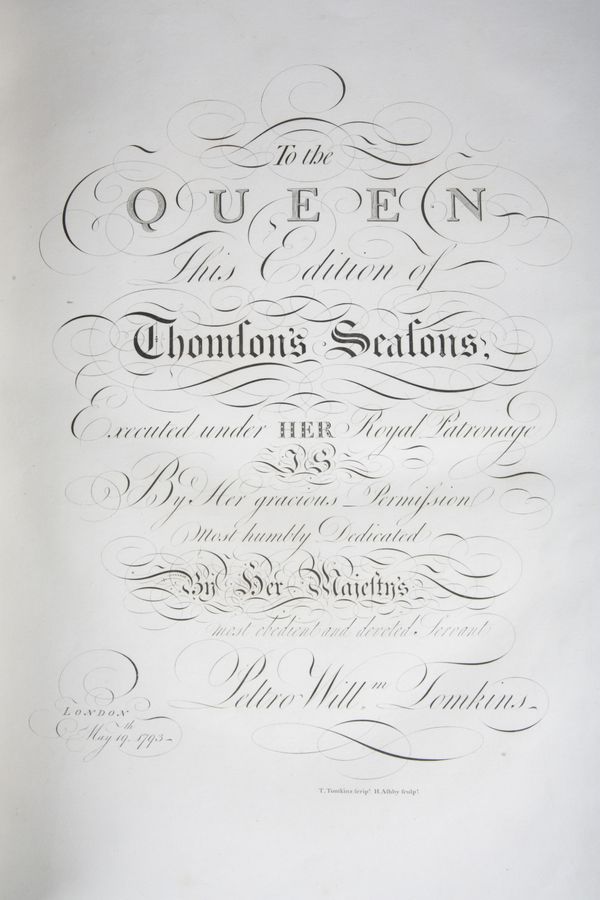 To the
QUEEN
This Edition of
Thomſon's Seaſons;
Executed under HER Royal Patronage
IS
By Her gracious Permiſsion
Most humbly Dedicated
By Her Majeſty's
most obedient and devoted Servant
Peltro Willm. Tomkins.
LONDON
May 19th 1793
T. Tomkins ſcript. H. Aſhby ſculpt.